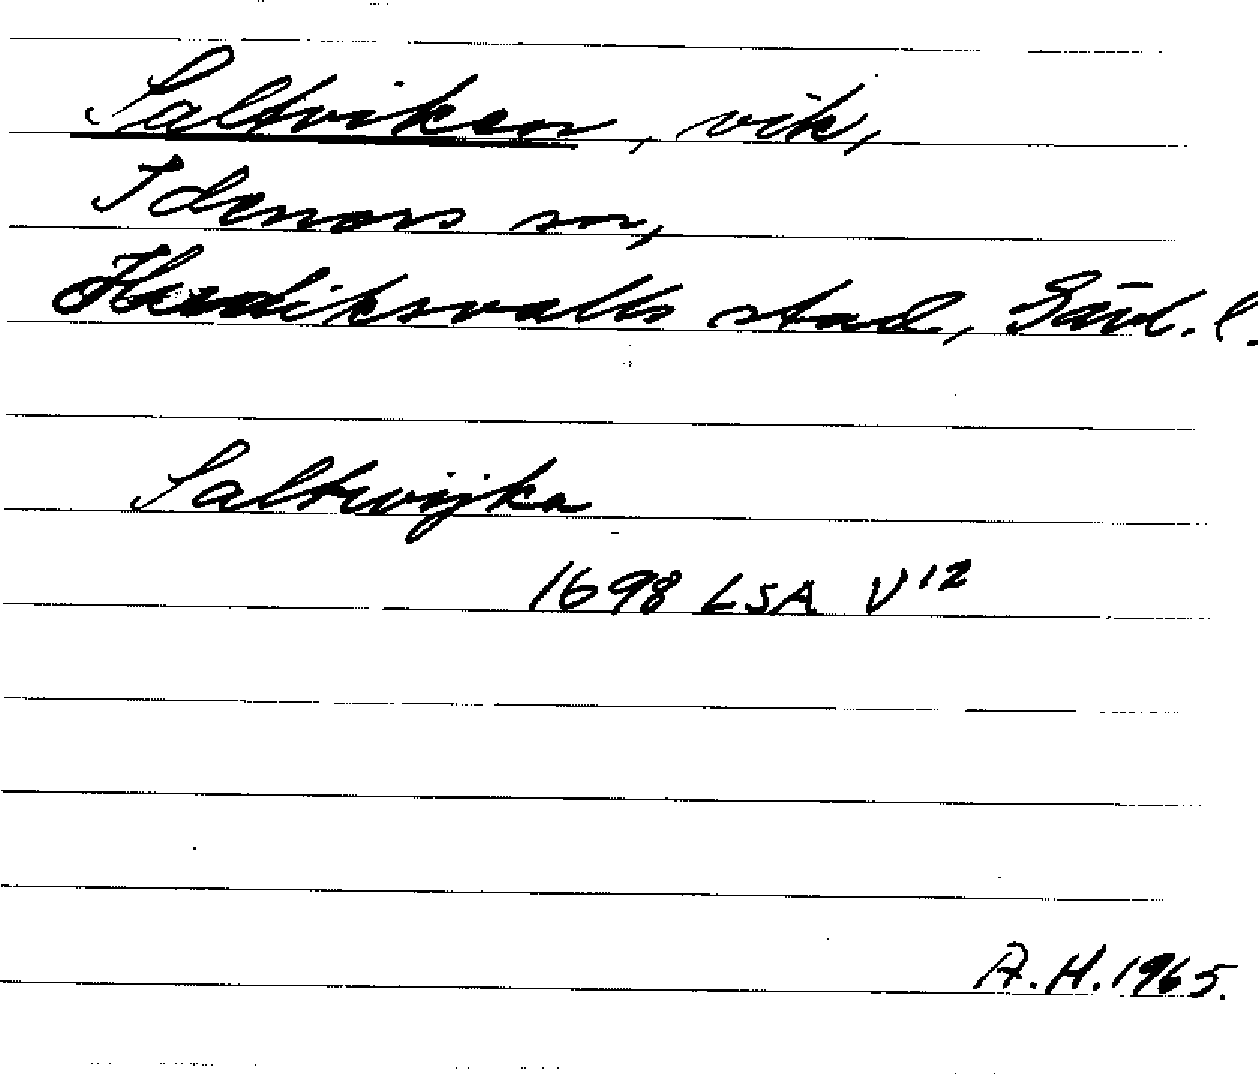 Saltviken, vik,
Idenors sn,
Hudiksvalls stad, Gävl. l.
Saltwijka
1698 LSA V 12
A.H. 1965.